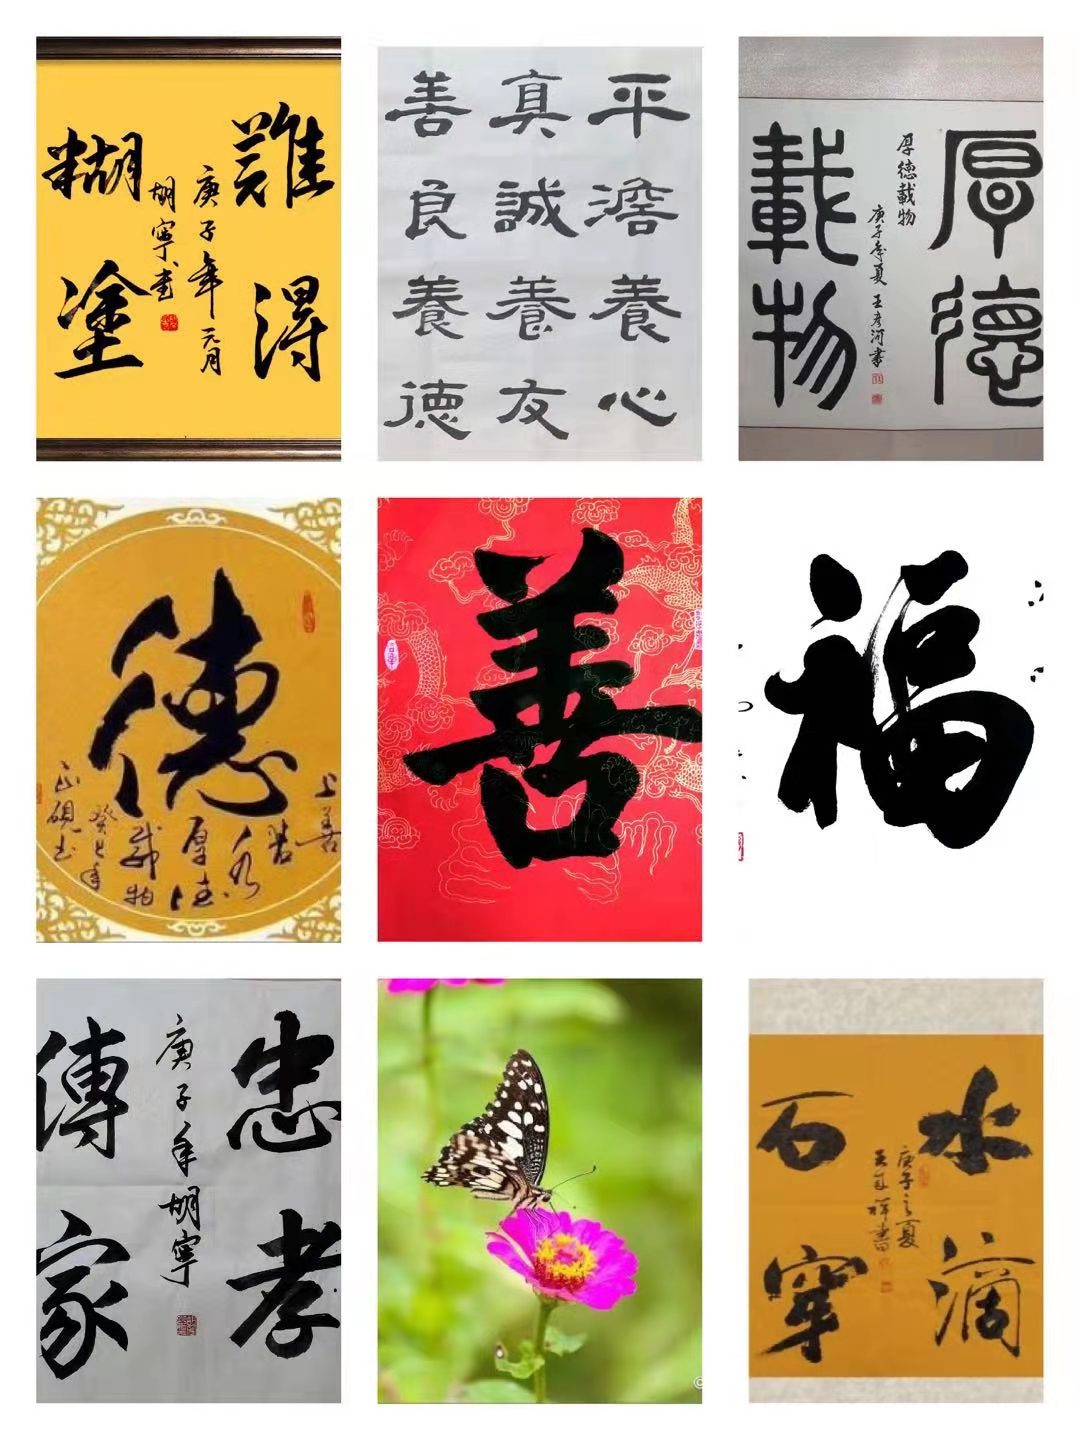 難得
糊塗
庚子年元月
胡寧書
平澹養心
真誠養友
善良養德
厚德
載物
厚德載物
庚子季夏 王彦河書
德
上善
若水
厚德
載物
癸巳年
善
福
忠孝
傳家
庚子年胡寧
水滴
石穿
庚子之夏